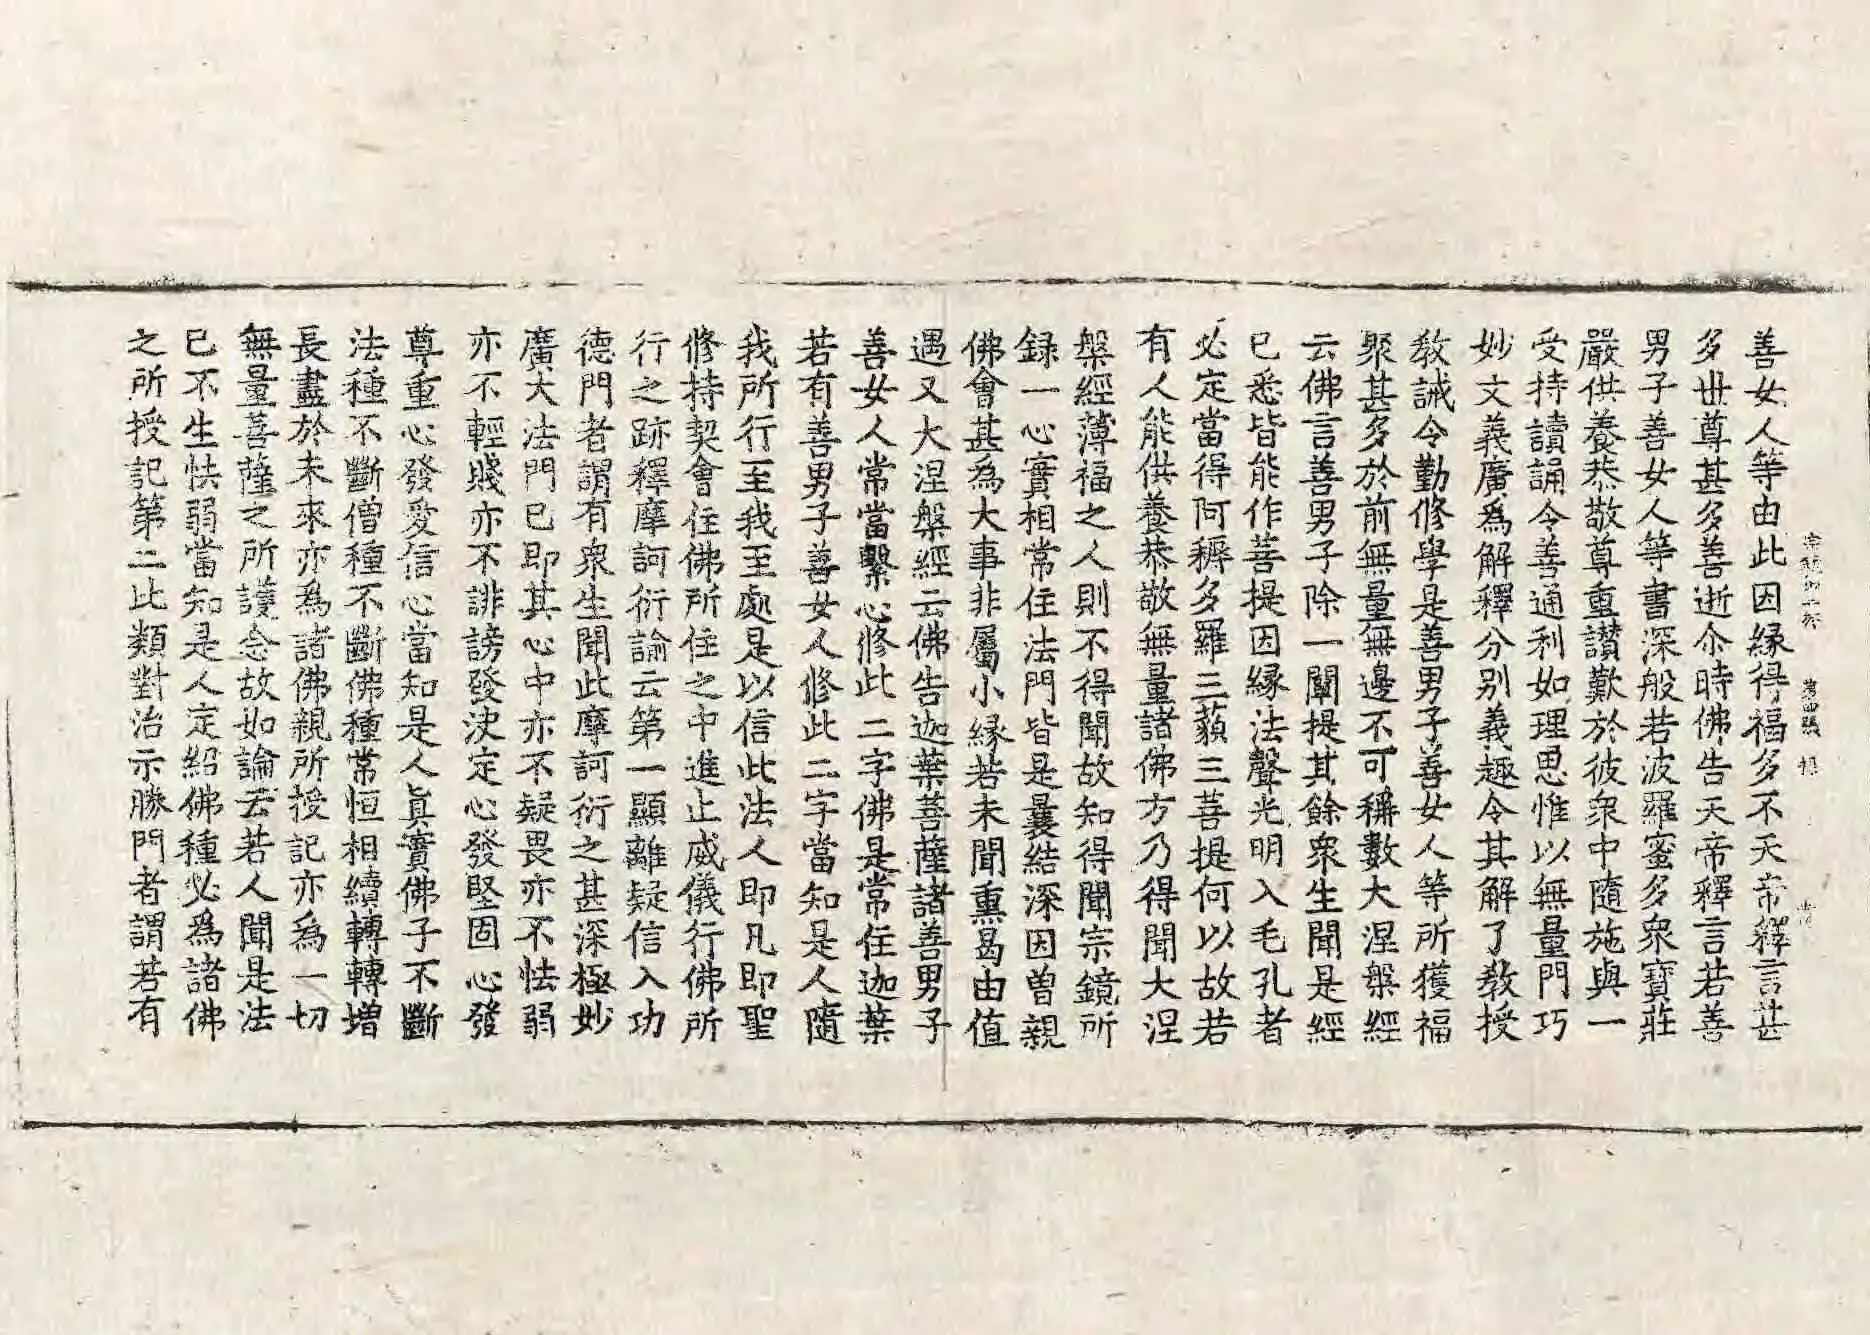 善女人等由此因緣得福多不天帝釋言甚
多世尊甚多善逝尒時佛告天帝釋言若善
男子善女人等書深般若波羅蜜多衆寶莊
嚴供養恭敬尊重讃歎於彼衆中隨施與一
受持讀誦令善通利如理思惟以無量門巧
妙文義廣爲解釋分別義趣令其解了教授
教誡令勤修學是善男子善女人等所獲福
聚甚多於前無量無邊不可稱數大涅槃經
云佛言善男子除一闡提其餘衆生聞是經
已悉皆能作菩提因緣法聲光明入毛孔者
必定當得阿耨多羅三藐三菩提何以故若
有人能供養恭敬無量諸佛方乃得聞大涅
槃經薄福之人則不得聞故知得聞宗鏡所
録一心實相常住法門皆是曩結深因曾親
佛會甚為大事非屬小緣若未聞熏曷由值
遇又大涅槃經云佛告迦葉菩薩諸善男子
善女人常當繫心修此二字佛是常住迦葉
若有善男子善女人修此二字當知是人隨
我所行至我至處是以信此法人即凡即聖
修持契會住佛所住之中進止威儀行佛所
行之跡釋摩訶衍論云第一顯離疑信入功
德門者謂有衆生聞此摩訶衍之甚深極妙
廣大法門已即其心中亦不疑畏亦不怯弱
亦不輕賤亦不誹謗發決定心發堅固心發
尊重心發愛信心當知是人眞實佛子不斷
法種不斷僧種不斷佛種常恒相續轉轉増
長盡於未來亦為諸佛親所授記亦為一切
無量菩薩之所護念故如論云若人聞是法
已不生怯弱當知是人定紹佛種必為諸佛
之所授記第二比類對治示勝門者謂若有